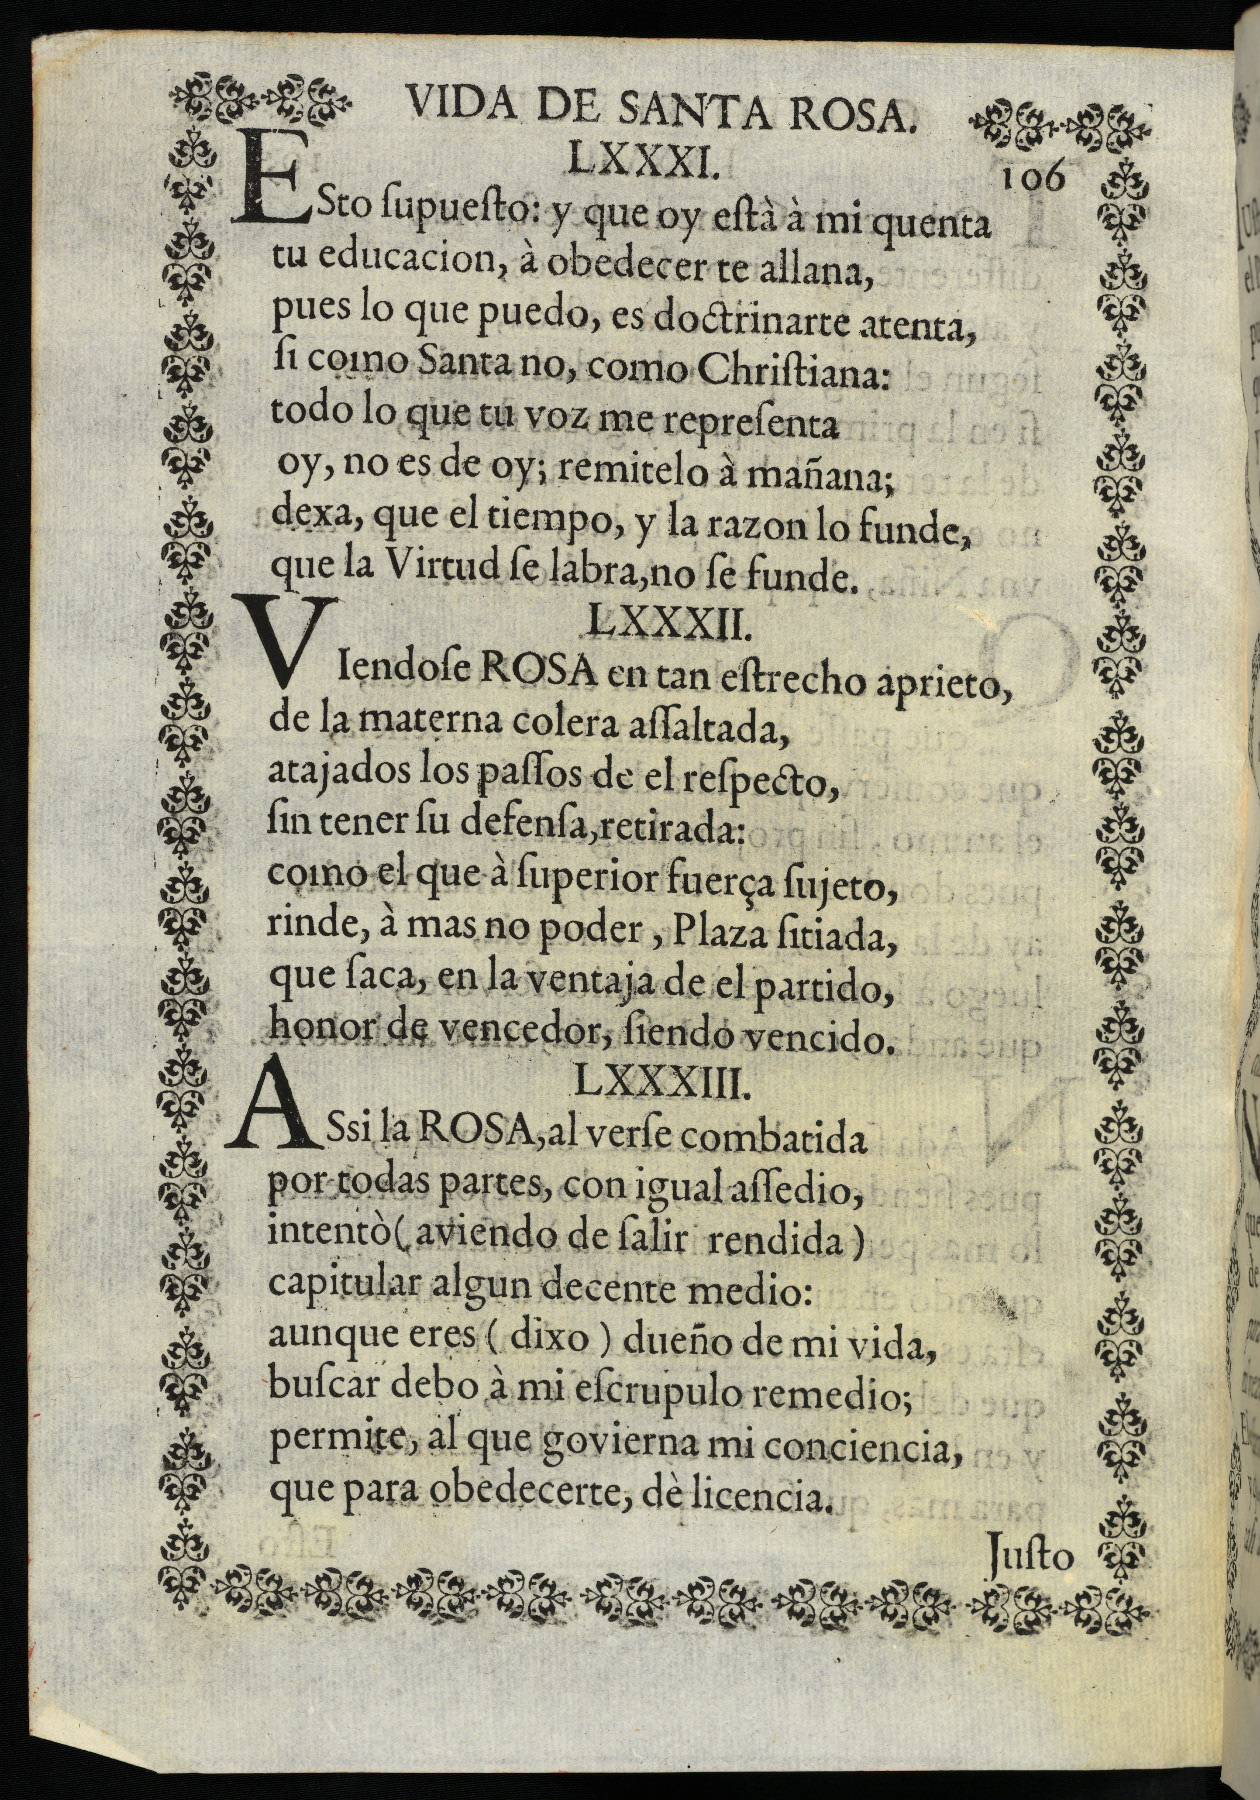 VIDA DE SANTA ROSA.
LXXXI.
106
ESto ſupueſto: y que oy eſtà à mi quenta
tu educacion, à obedecer te allana,
pues lo que puedo, es doctrinarte atenta,
ſi como Santa no, como Chriſtiana:
todo lo que tu voz me repreſenta
oy, no es de oy; remitelo à mañana;
dexa, que el tiempo, y la razon lo funde,
que la Virtud ſe labra,no ſe funde.
LXXXII.
VIendoſe ROSA en tan eſtrecho aprieto,
de la materna colera aſſaltada,
atajados los paſſos de el reſpecto,
ſin tener ſu defenſa,retirada:
como el que à ſuperior fuerça ſujeto,
rinde, à mas no poder , Plaza ſitiada,
que ſaca, en la ventaja de el partido,
honor de vencedor, ſiendo vencido.
LXXXIII.
ASsi la ROSA,al verſe combatida
por todas partes, con igual aſſedio,
intentò( aviendo de ſalir rendida )
capitular algun decente medio:
aunque eres ( dixo ) dueño de mi vida,
buſcar debo à mi eſcrupulo remedio;
permite, al que govierna mi conciencia,
que para obedecerte, dè licencia.
Juſto